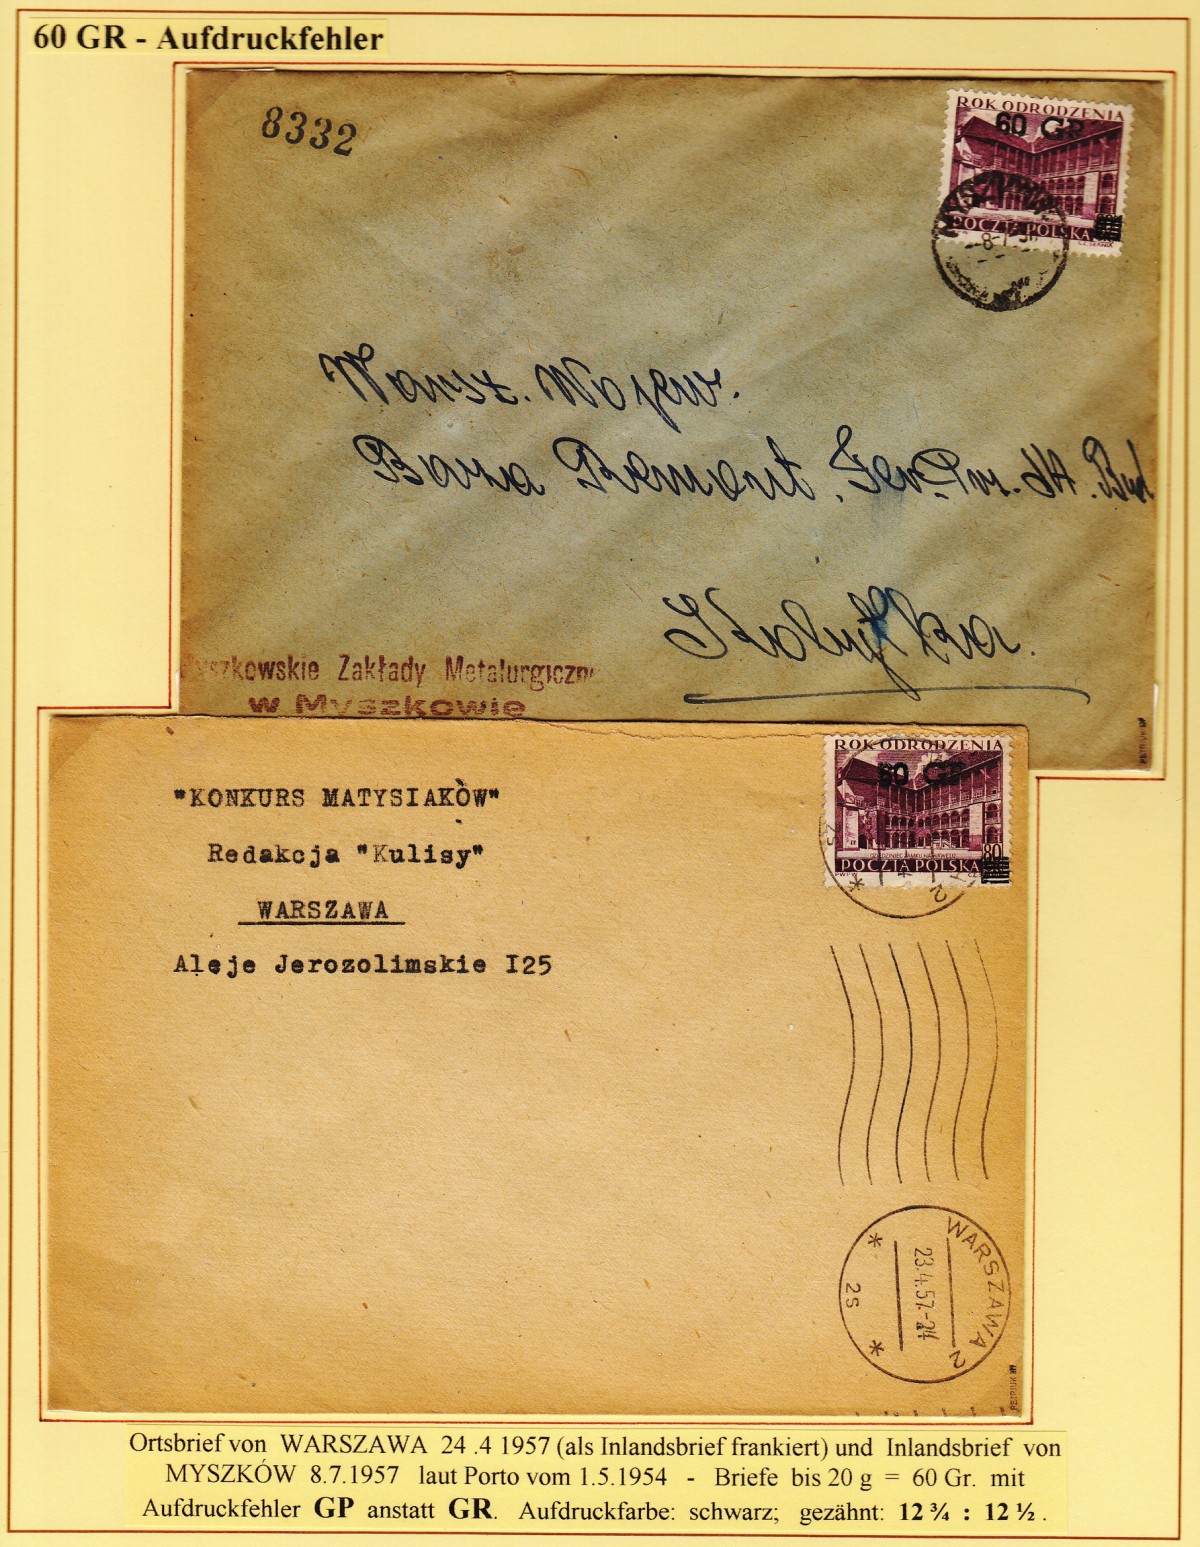 60 GR - Aufdruckfehler
8332
ROK ODRODZENIA
60 GP
POCZTA POLSKA
Warsz. Wojew.
Baza Remont.
Myszkowskie Zakłady Metalurgiczne
w Myszkowie
PETRIUK
"KONKURS MATYSIAKÓW"
Redakcja "Kulisy"
WARSZAWA
Aleje Jerozolimskie I25
ROK ODRODZENIA
60 GP
80
POCZTA POLSKA
WARSZAWA 2
23.4.57.-24
2S
PETRIUK
Ortsbrief von WARSZAWA 24 .4 1957 (als Inlandsbrief frankiert) und Inlandsbrief von
MYSZKÓW 8.7.1957 laut Porto vom 1.5.1954 - Briefe bis 20 g = 60 Gr. mit
Aufdruckfehler GP anstatt GR. Aufdruckfarbe: schwarz; gezähnt: 12 ¾ : 12 ½ .